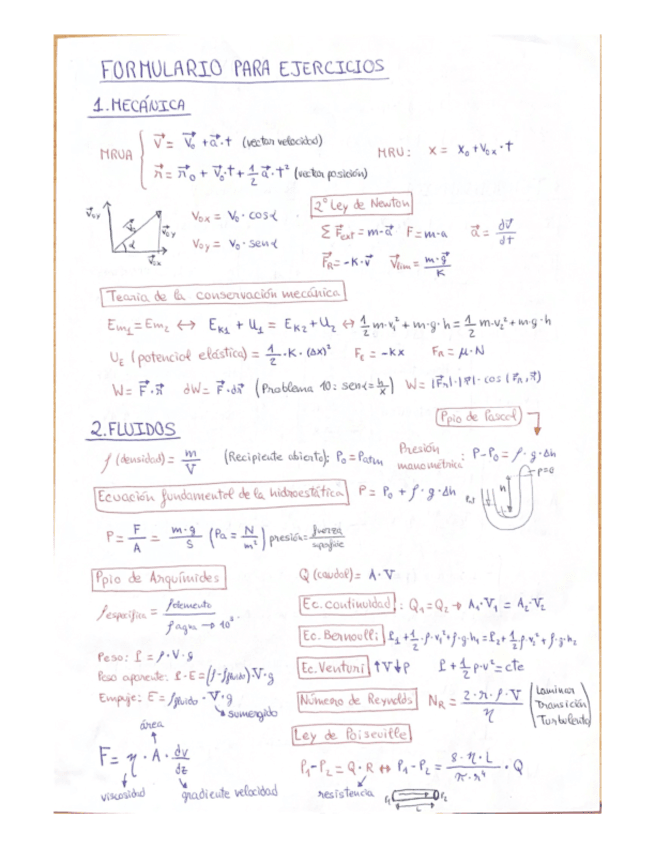 FORMULARIO PARA EJERCICIOS
1. MECÁNICA
MRUA { v⃗ = v⃗₀ + a⃗·t (vector velocidad)
r⃗ = r⃗₀ + v⃗₀·t + 1/2 a⃗·t² (vector posición)
MRU: x = x₀ + v₀ₓ·t
v⃗oy v⃗o α v⃗oy v⃗ox
Vox = Vo · cosα
Voy = Vo · senα
2º Ley de Newton
Σ F⃗ext = m·a⃗ F = m·a a⃗ = dv⃗/dt
F⃗R = -K·v⃗ v⃗lim = m·g⃗/K
Teoría de la conservación mecánica
Em₁ = Em₂ ↔ EK1 + U₁ = EK2 + U₂ ↔ 1/2 m·v₁² + m·g·h = 1/2 m·v₂² + m·g·h
UE (potencial elástica) = 1/2 · K · (Δx)² FE = -kx FR = μ·N
W = F⃗·r⃗ dW = F⃗·dr⃗ (Problema 10: senα = h/x) W = |F⃗R|·|r⃗|·cos(F⃗R, r⃗)
Ppio de Pascal
2. FLUIDOS
ρ (densidad) = m/V (Recipiente abierto): P₀ = Patm Presión manométrica: P-P₀ = ρ·g·Δh
Ecuación fundamental de la hidroestática P = P₀ + ρ·g·Δh
P=0 h
P = F/A = m·g/S (Pa = N/m²) presión = fuerza/superficie
Ppio de Arquímides
ρ específica = ρ elemento / ρ agua → 10³
Peso: P = ρ·V·g
Peso aparente: P-E = (ρ-ρfluido)·V·g
Empuje: E = ρfluido · V·g
sumergido
área
F = η · A · dv/dz
viscosidad gradiente velocidad
Q (caudal) = A·V
Ec. continuidad : Q₁ = Q₂ → A₁·V₁ = A₂·V₂
Ec. Bernoulli P₁ + 1/2·ρ·v₁² + ρ·g·h₁ = P₂ + 1/2·ρ·v₂² + ρ·g·h₂
Ec. Venturi ↑V↓P P + 1/2 ρ·v² = cte
Número de Reynolds NR = 2·r·ρ·V/η (Laminar
Transición
Turbulento)
Ley de Poiseuille
P₁-P₂ = Q·R ↔ P₁-P₂ = 8·η·L/π·r⁴ · Q
resistencia P₁ P₂
L